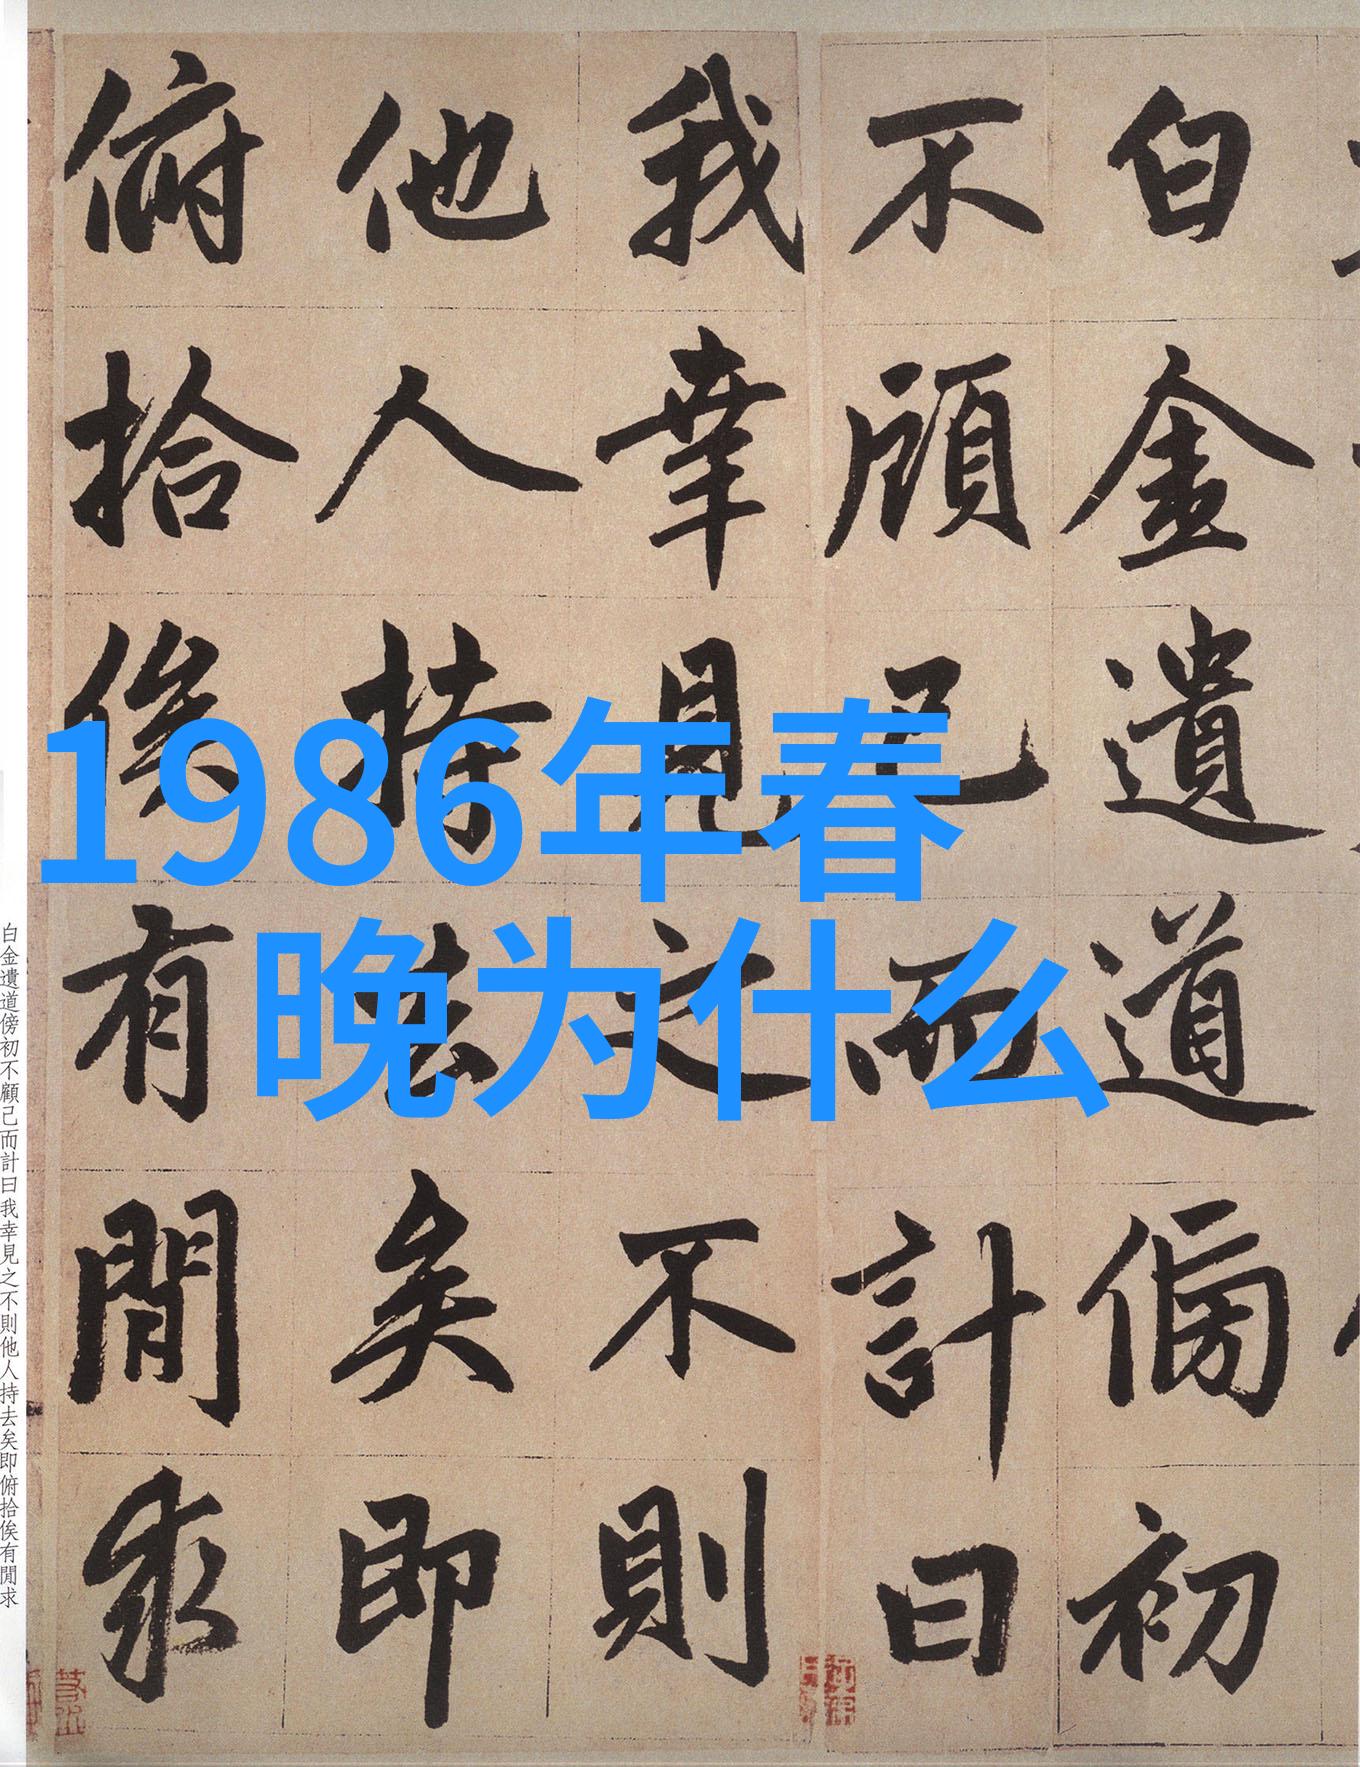 1986年春
晚为什么
白金遺道傍初
不顧己而計曰
我幸見之不則
他人持去矣即
俯拾俟有閒求
白金遺道傍初不顧己而計曰我幸見之不則他人持去矣即俯拾俟有閒求